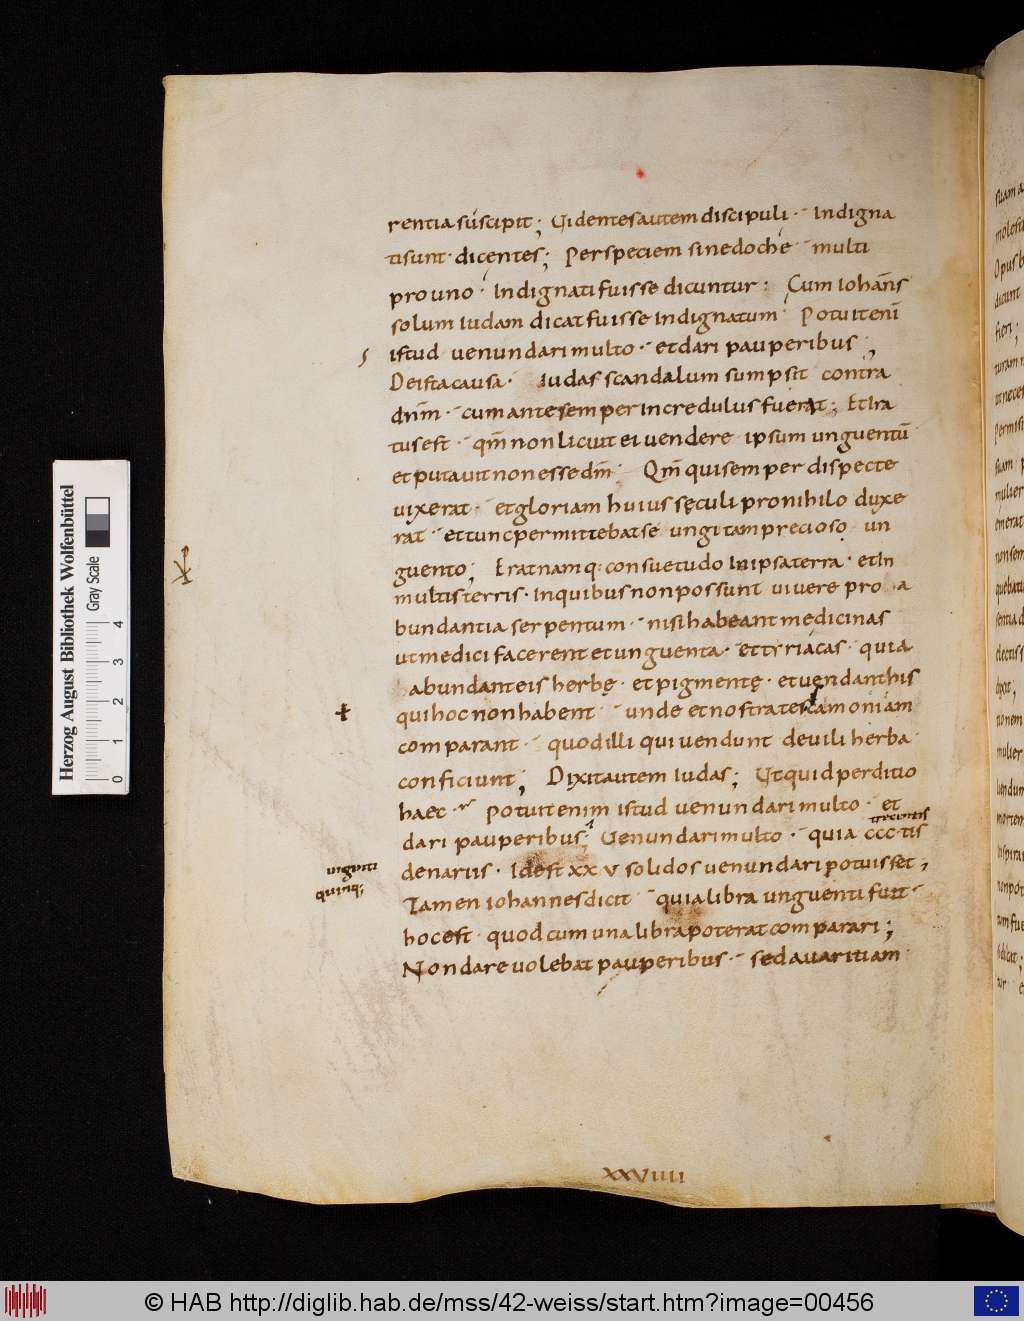 rentia suscipit; Uidentes autem discipuli · Indigna
ti sunt · dicentes; Per speciem sinedoche · multi
pro uno · Indignati fuisse dicuntur: Cum Iohanīs
solum iudam dicat fuisse Indignatum · Potuit enī
istud uenundari multo · et dari pauperibus;
De ista causa · Iudas scandalum sumpsit contra
dn̄m · cum ante semper Incredulus fuerat; Et Ira
tus est · qm̄ non licuit ei uendere ipsum unguentū
et putauit non esse dm̄ · Qm̄ qui semper dispecte
uixerat · et gloriam huius sęculi pro nihilo duxe
rat · et tunc permittebat se ungi tam precioso un
guento; Erat namq: consuetudo In ipsa terra · et In
multis terris · In quibus non possunt uiuere pro a
bundantia serpentum · nisi habeant medicinas
ut medici facerent et unguenta · et tyriácas · quia
abundant eis herbę · et pigmentę · et uendant his
qui hoc non habent · unde et nostrates scamoniam
comparant · quod illi qui uendunt de uili herba
conficiunt; Dixit autem Iudas; Ut quid perditio
haec · Potuit enim istud uenundari multo · et
trecentis
dari pauperibus; Uenundari multo · quia ccc tis
uiginti
quinq;
denariis · Idest xx v solidos uenundari potuisset,
Tamen iohannes dicit · quia libra unguenti fuit
hoc est · quod cum una libra poterat comparari;
Non dare uolebat pauperibus · sed auaritiam
xxviiii
Herzog August Bibliothek Wolfenbüttel
Gray Scale
0 1 2 3 4
© HAB http://diglib.hab.de/mss/42-weiss/start.htm?image=00456